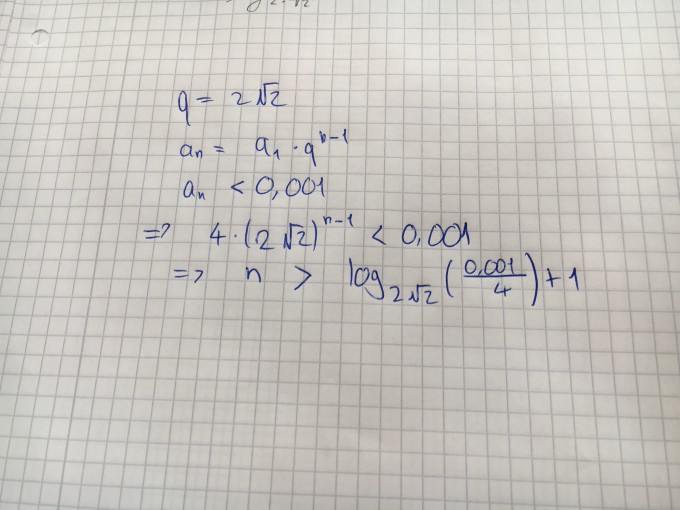 q = 2√2
aₙ = a₁ · qⁿ⁻¹
aₙ < 0,001
=> 4·(2√2)ⁿ⁻¹ < 0,001
=> n > log_{2√2}(0,001/4)+1